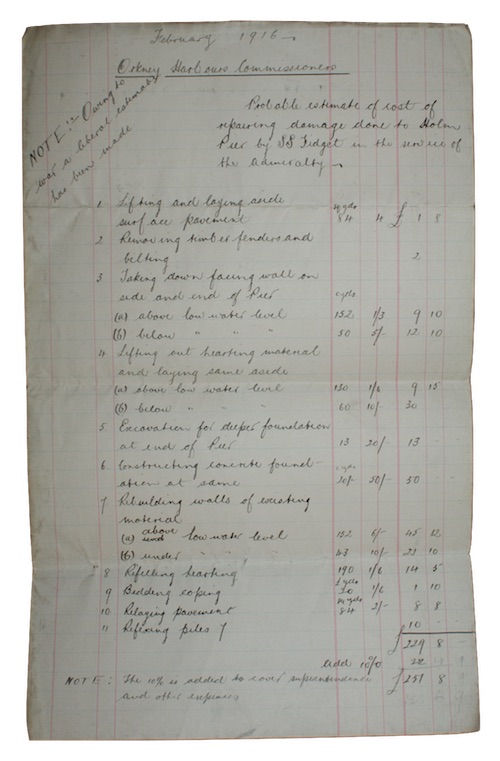 February 1916
Orkney Harbours Commissioners
NOTE:- Owing to
war a liberal estimate
has been made
Probable estimate of cost of
repairing damage done to Holm
Pier by SS Fidget in the service of
the admiralty
1 Lifting and laying aside
surface pavement sq yds 84 4 £ 1 8
2 Removing timber fenders and
belting 2
3 Taking down facing wall on
side and end of Pier c yds
(a) above low water level 152 1/3 9 10
(b) below " " " 50 5/- 12 10
4 Lifting out hearting material
and laying same aside
(a) above low water level 130 1/6 9 15
(b) below " " " 60 10/- 30
5 Excavation for deeper foundation
at end of Pier 13 20/- 13
6 Constructing concrete found-
ation at same c yds 50/- 50
7 Rebuilding walls of existing
material
above
(a) low water level 152 6/- 45 12
(b) under " " " 43 10/- 10
8 Refilling hearting 190 1/6 14 5
9 Bedding coping 1/6 1 10
10 Relaying pavement sq yds 84 2/- 8 8
11 Refixing piles 7 10 -
£ 229 8
add 10% 22
£ 251 8
NOTE: The 10% is added to cover superintendence
and other expenses